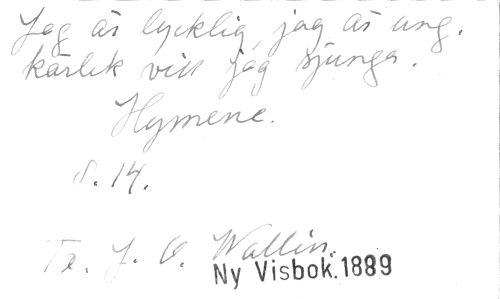 Jag är lycklig, jag är ung.
kärlek vill jag sjunga.
Hymene.
s. 14.
Tr. J. O. Wallin.
Ny Visbok.1889